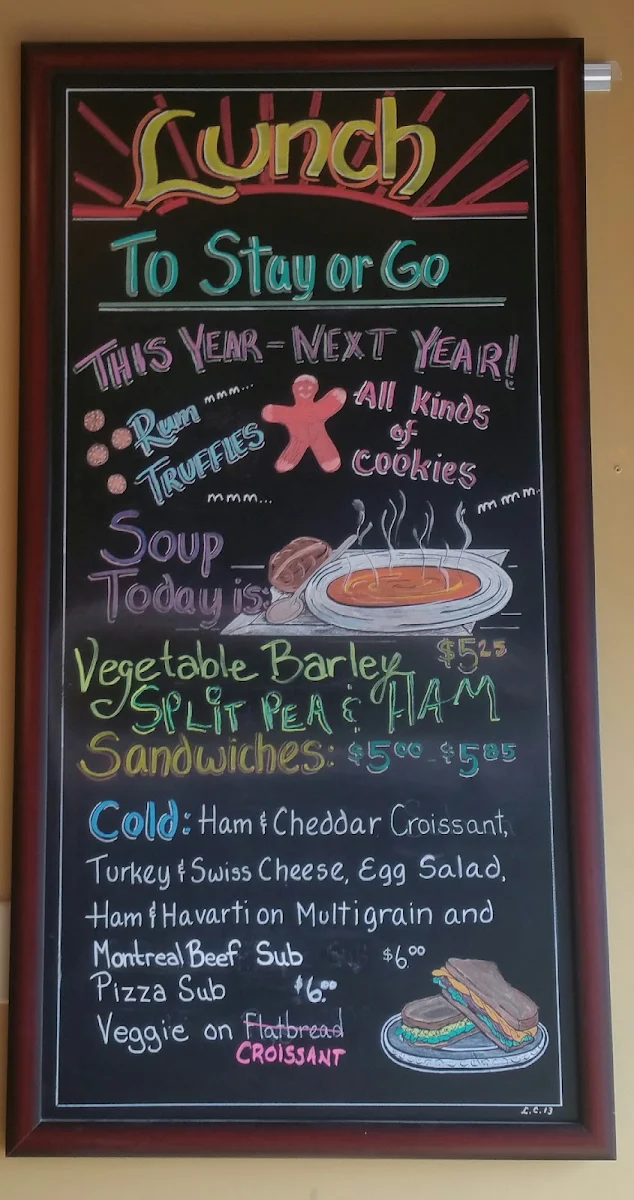 Lunch
To Stay or Go
THIS YEAR - NEXT YEAR!
mmm...
Rum
TRUFFLES
mmm...
All Kinds
of
Cookies
mm mm.
Soup
Today is:
$5.25
Vegetable Barley
SPLIT PEA & HAM
Sandwiches: $5.00 - $5.85
Cold: Ham & Cheddar Croissant,
Turkey & Swiss Cheese, Egg Salad,
Ham & Havarti on Multigrain and
Montreal Beef Sub $6.00
Pizza Sub $6.00
Veggie on Flatbread
CROISSANT
L.C.13